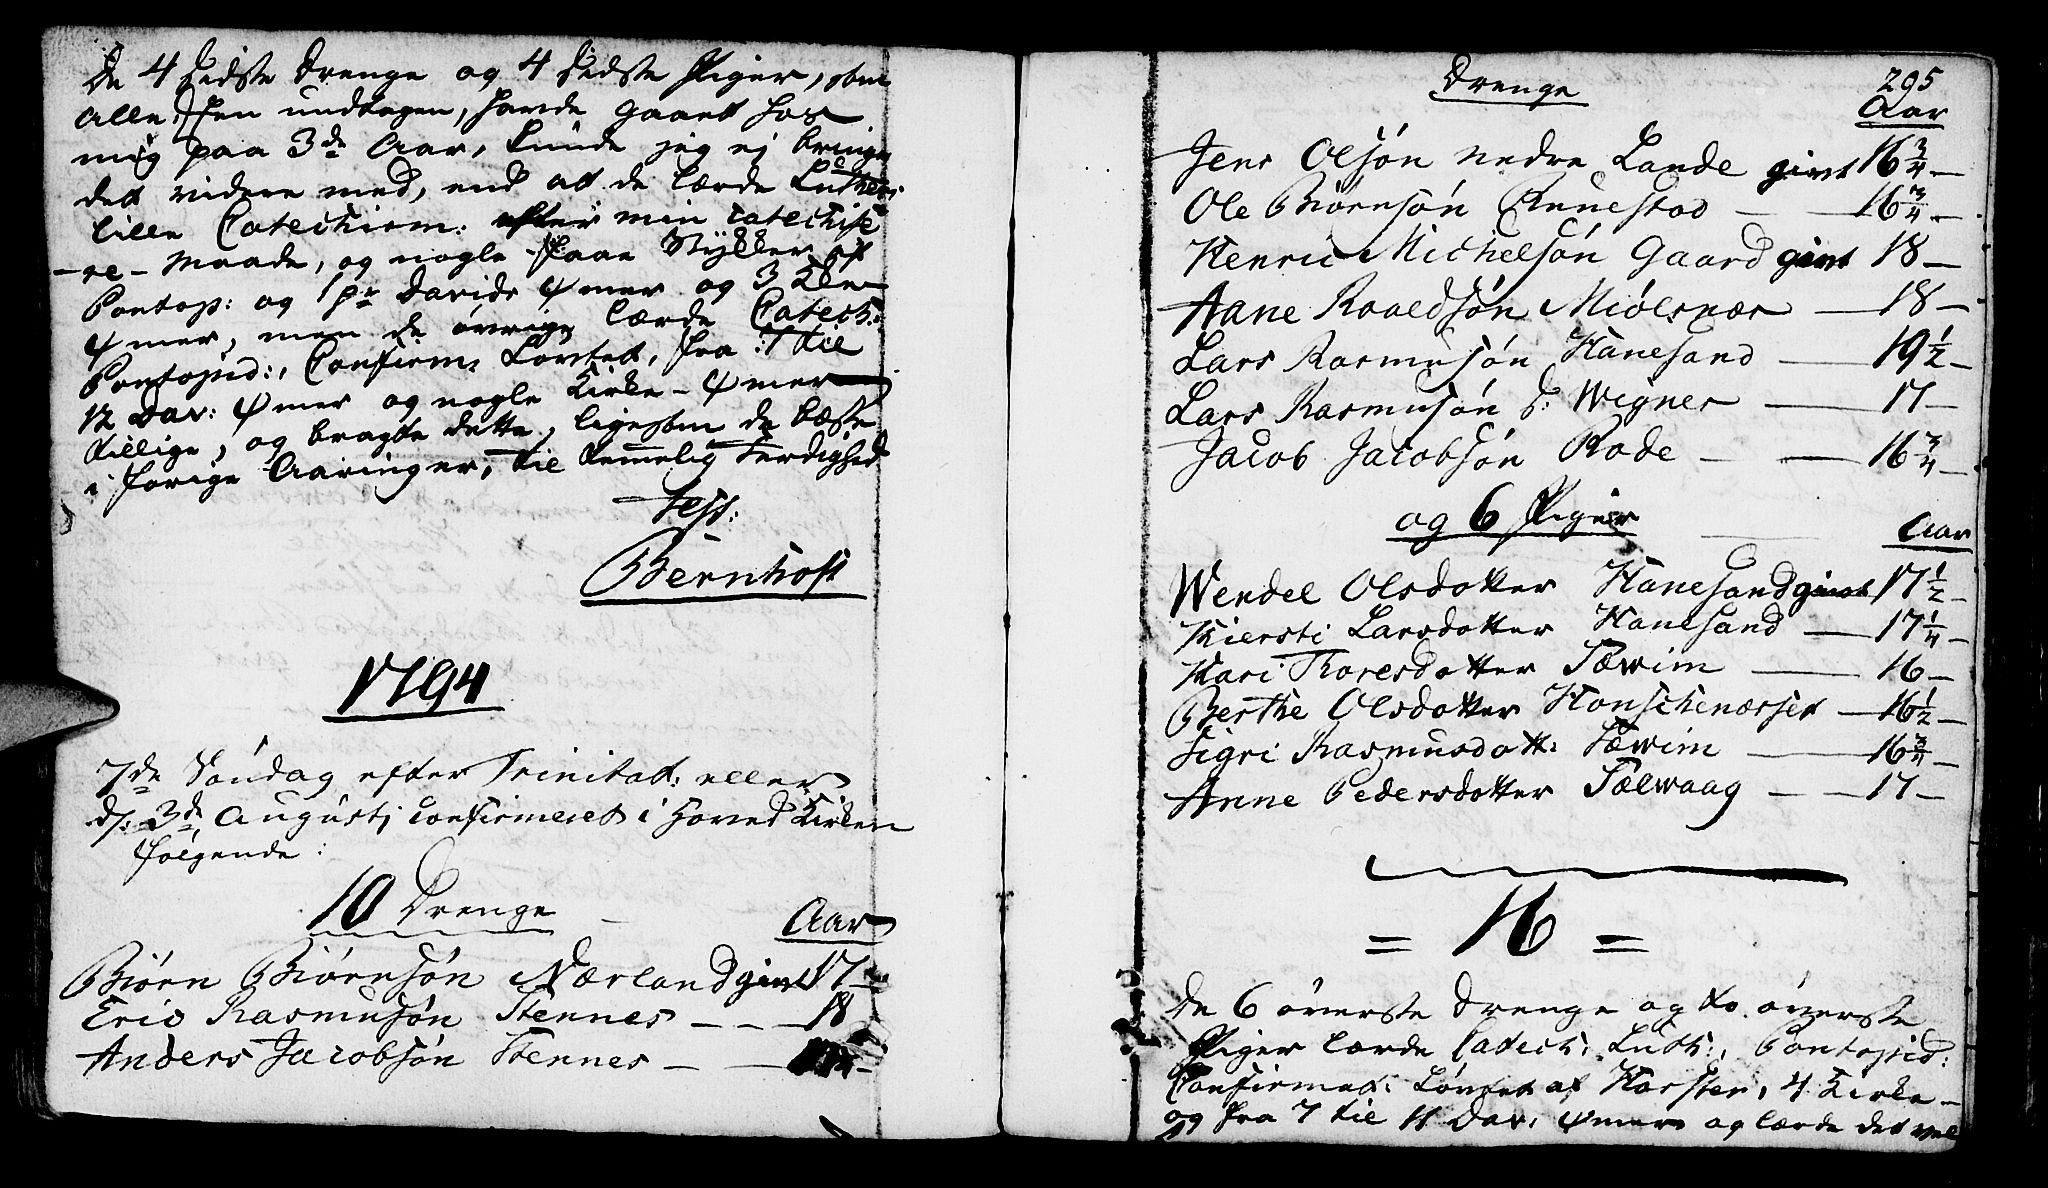 De 4 sidste Drenge og 4 sidste Piger, som
alle, een undtagen, havde gaaet hos
mig paa 3de Aar, kunde jeg ej bringe
det videre med, end at de lærde Luthers
lille Catechism: efter min catechise
-re- Maade, og nogle faae Stykker af
Pontop: og 1ste Davids ψmer og 3
ψmer, men de øvrige lærde Catech:
Pontopid:, Confirm. Løvtet, fra 1 til
12 Dav: ψmer og nogle Kirke-ψmer
tillige, og bragte dette, ligesom de bæste
i forige Aaringer, til temelig Ferdighed
test:
Bernhoft
1794
7de Søndag efter Trinitat: eller
d: 3de Augustj confirmeret i Hoved Kirken
følgende:
10 Drenge
Aar
Biørn Biørnsøn Nærland givt 17 -
Eric Rasmusøn Stennes - - - 18
Anders Jacobsøn Stennes - -
295
Drenge
Aar
Jens Olsøn nedre Lande givt 16 3/4 -
Ole Biørnsøn Runestad - - 16 3/4 -
Henric Michelsøn Gaard givt 18 -
Aane Roaldsøn Miølsnæs - 18 -
Lars Rasmusøn Hanesand - 19 1/2 -
Lars Rasmusøn S: Wignes - 17 -
Jacob Jacobsøn Rode - - 16 3/4 -
og 6 Piger
Aar
Wendel Olsdotter Hanesand givt 17 1/2 -
Kiersti Larsdotter Hanesand - 17 1/4 -
Kari Thoresdotter Tæwim - 16 -
Berthe Olsdotter Honschenæsset - 16 1/2 -
Sigri Rasmusdott: Tæwim - 16 3/4 -
Anne Pedersdotter Tælwaag - - 17 -
= 16 =
De 6 øverste Drenge og to øverste
Piger lærde Catech: Luth:, Pontopid:
Confirmat: Løvtet af Horster, 4 Kirke-
og fra 7 til 11 Dav: ψmer og lærde det vel